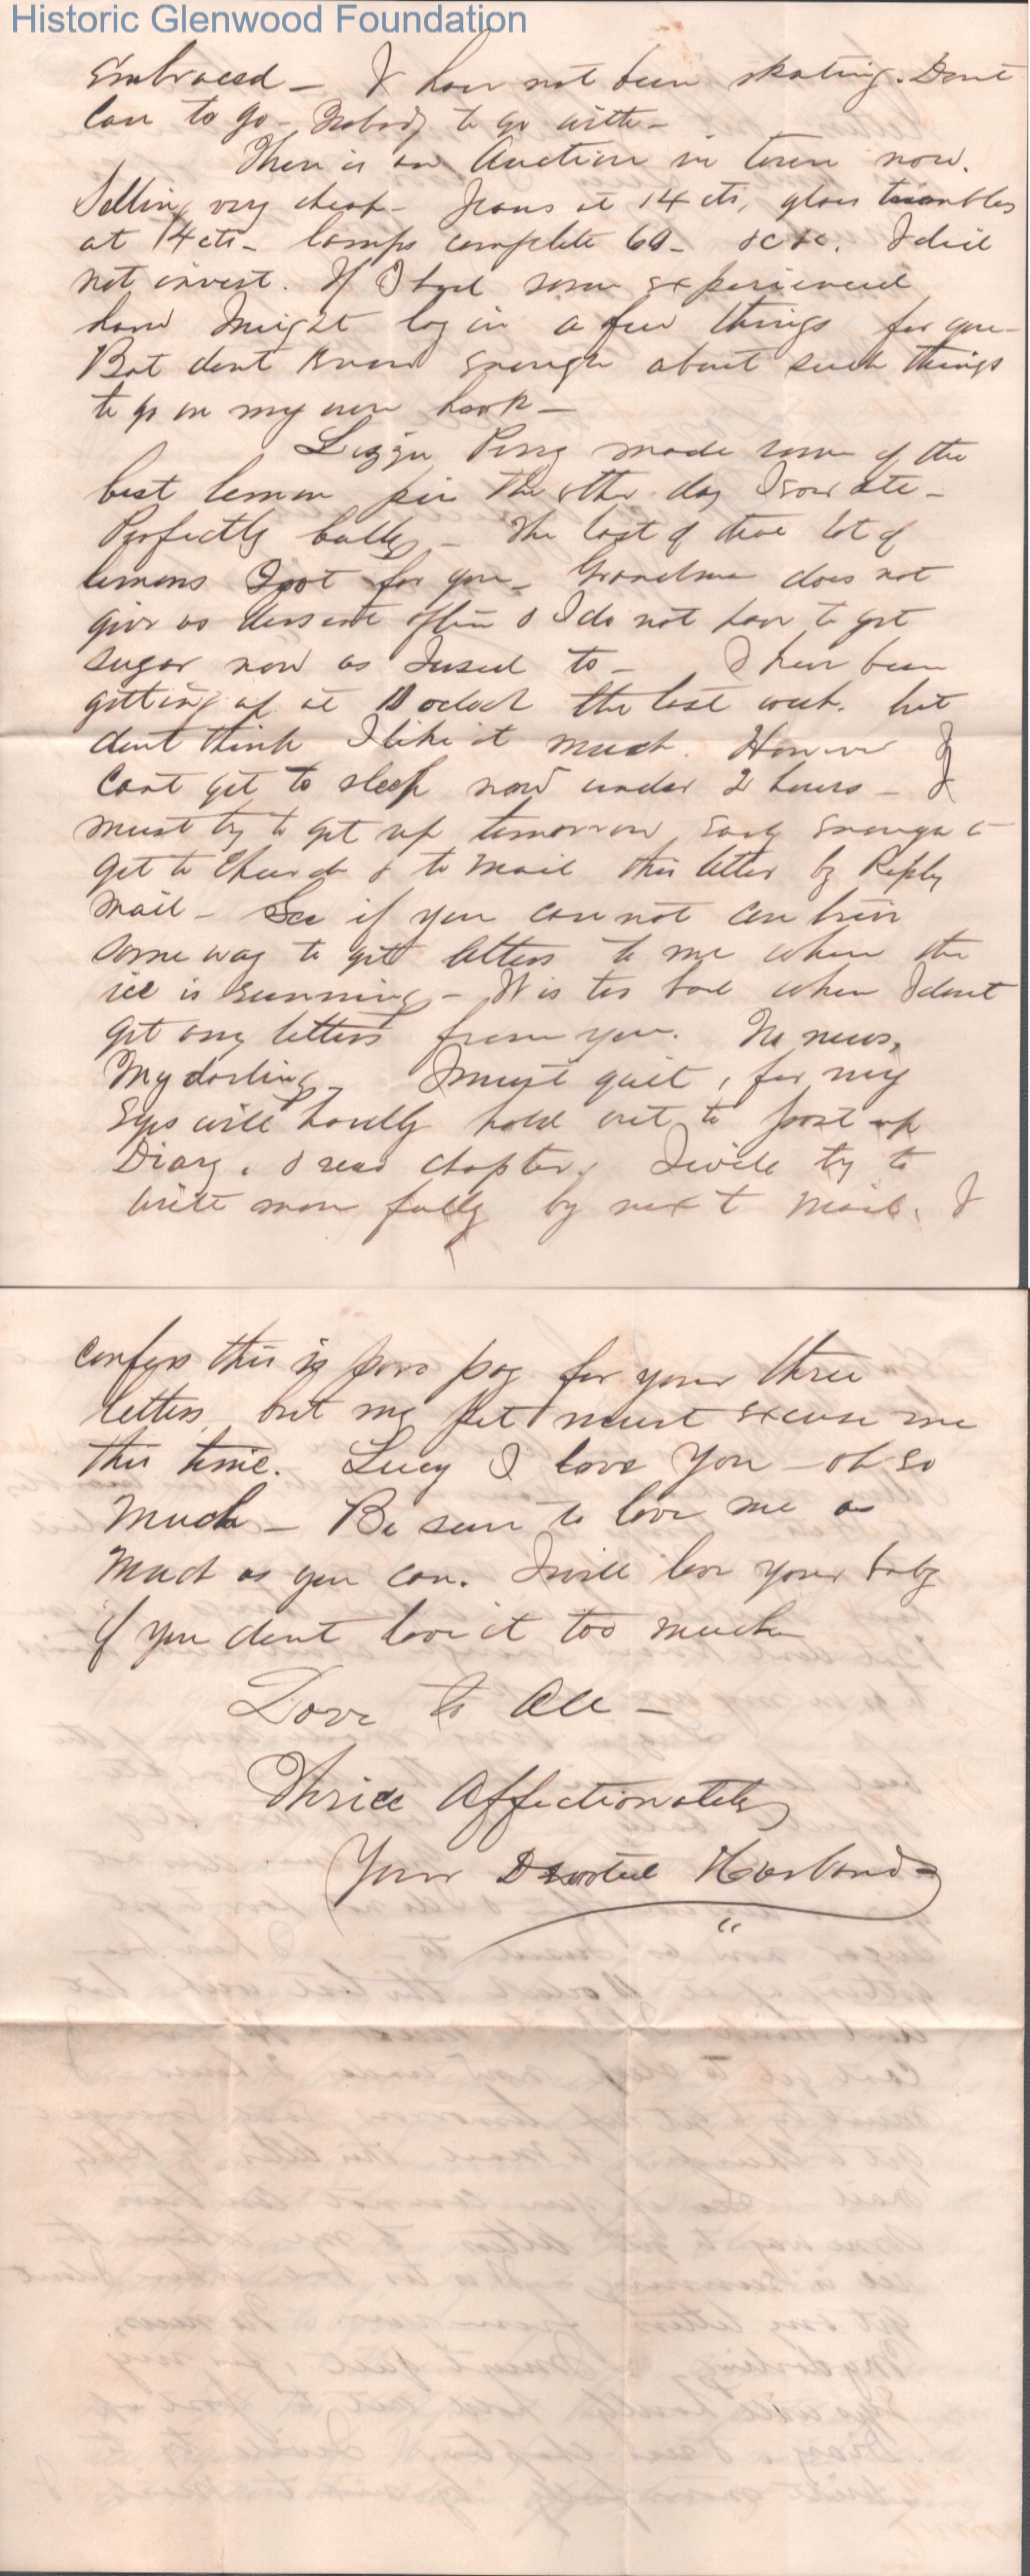 Historic Glenwood Foundation
Embraced – I have not been skating. Dont
Care to go – Nobody to go with –
There is an Auction in town now.
Selling very cheap – Jeans at 14 cts, glass tumblers
at 14 cts – lamps complete 60 – &c &c. I did
not invest. If I had some experienced
hand I might lay in a few things for you –
But dont know enough about such things
to go on my own hook –
Lizzie made some of the
best lemon pie the other day I ever ate –
Perfectly bully – The last of that lot of
lemons I got for you – Grandma does not
give us dessert often & I do not have to get
sugar now as I used to – I have been
getting up at oclock the last week. but
dont think I like it much. However I
Cant get to sleep now under 2 hours – I
must try to get up tomorrow early enough to
get to Church & to mail this letter by
mail – See if you can not contrive
some way to get letters to me when the
ice is running – It is too bad when I dont
get any letters from you. No news,
My darling – I must quit, for my
Eyes will hardly hold out to post up
Diary, & read chapter. I will try to
write more fully by next mail. I
confess this is poor pay for your three
letters but my pet must excuse me
this time. Lucy I love You – oh so
Much – Be sure to love me as
Much as you can. I will love your baby
if you dont love it too much
Love to All –
Thrice Affectionately
Your Devoted Husband
"